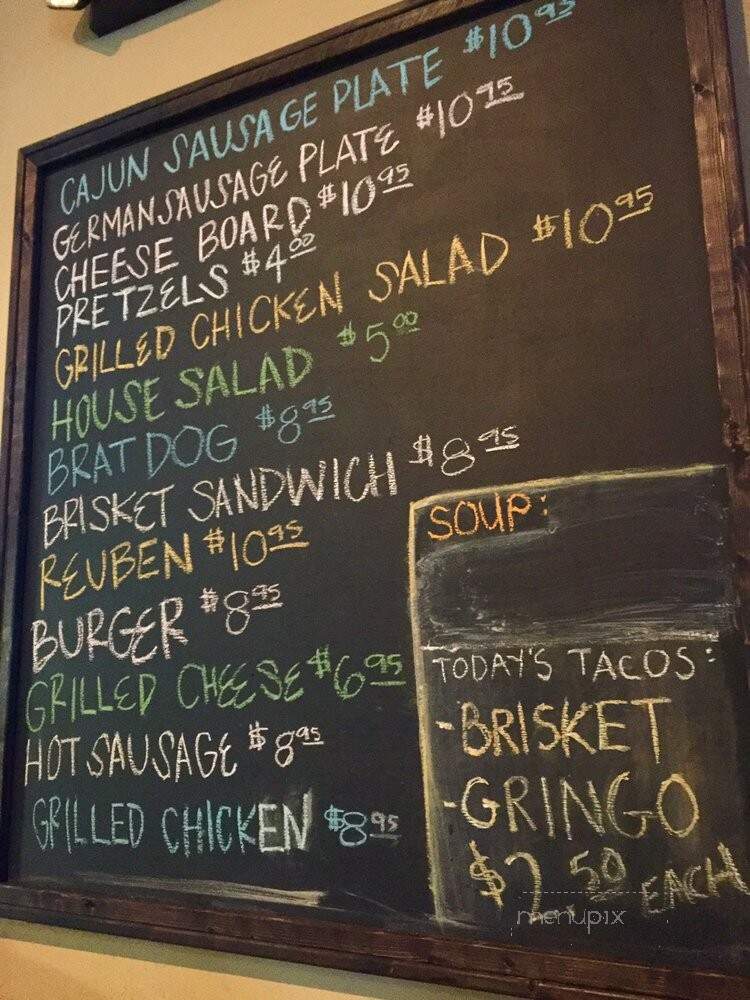 CAJUN SAUSAGE PLATE $10.95
GERMAN SAUSAGE PLATE $10.95
CHEESE BOARD $10.95
PRETZELS $4.00
GRILLED CHICKEN SALAD $10.95
HOUSE SALAD $5.00
BRAT DOG $8.95
BRISKET SANDWICH $8.95
REUBEN $10.95
BURGER $8.95
GRILLED CHEESE $6.95
HOT SAUSAGE $8.95
GRILLED CHICKEN $8.95
SOUP:
TODAY'S TACOS:
-BRISKET
-GRINGO
$2.50 EACH
menupix